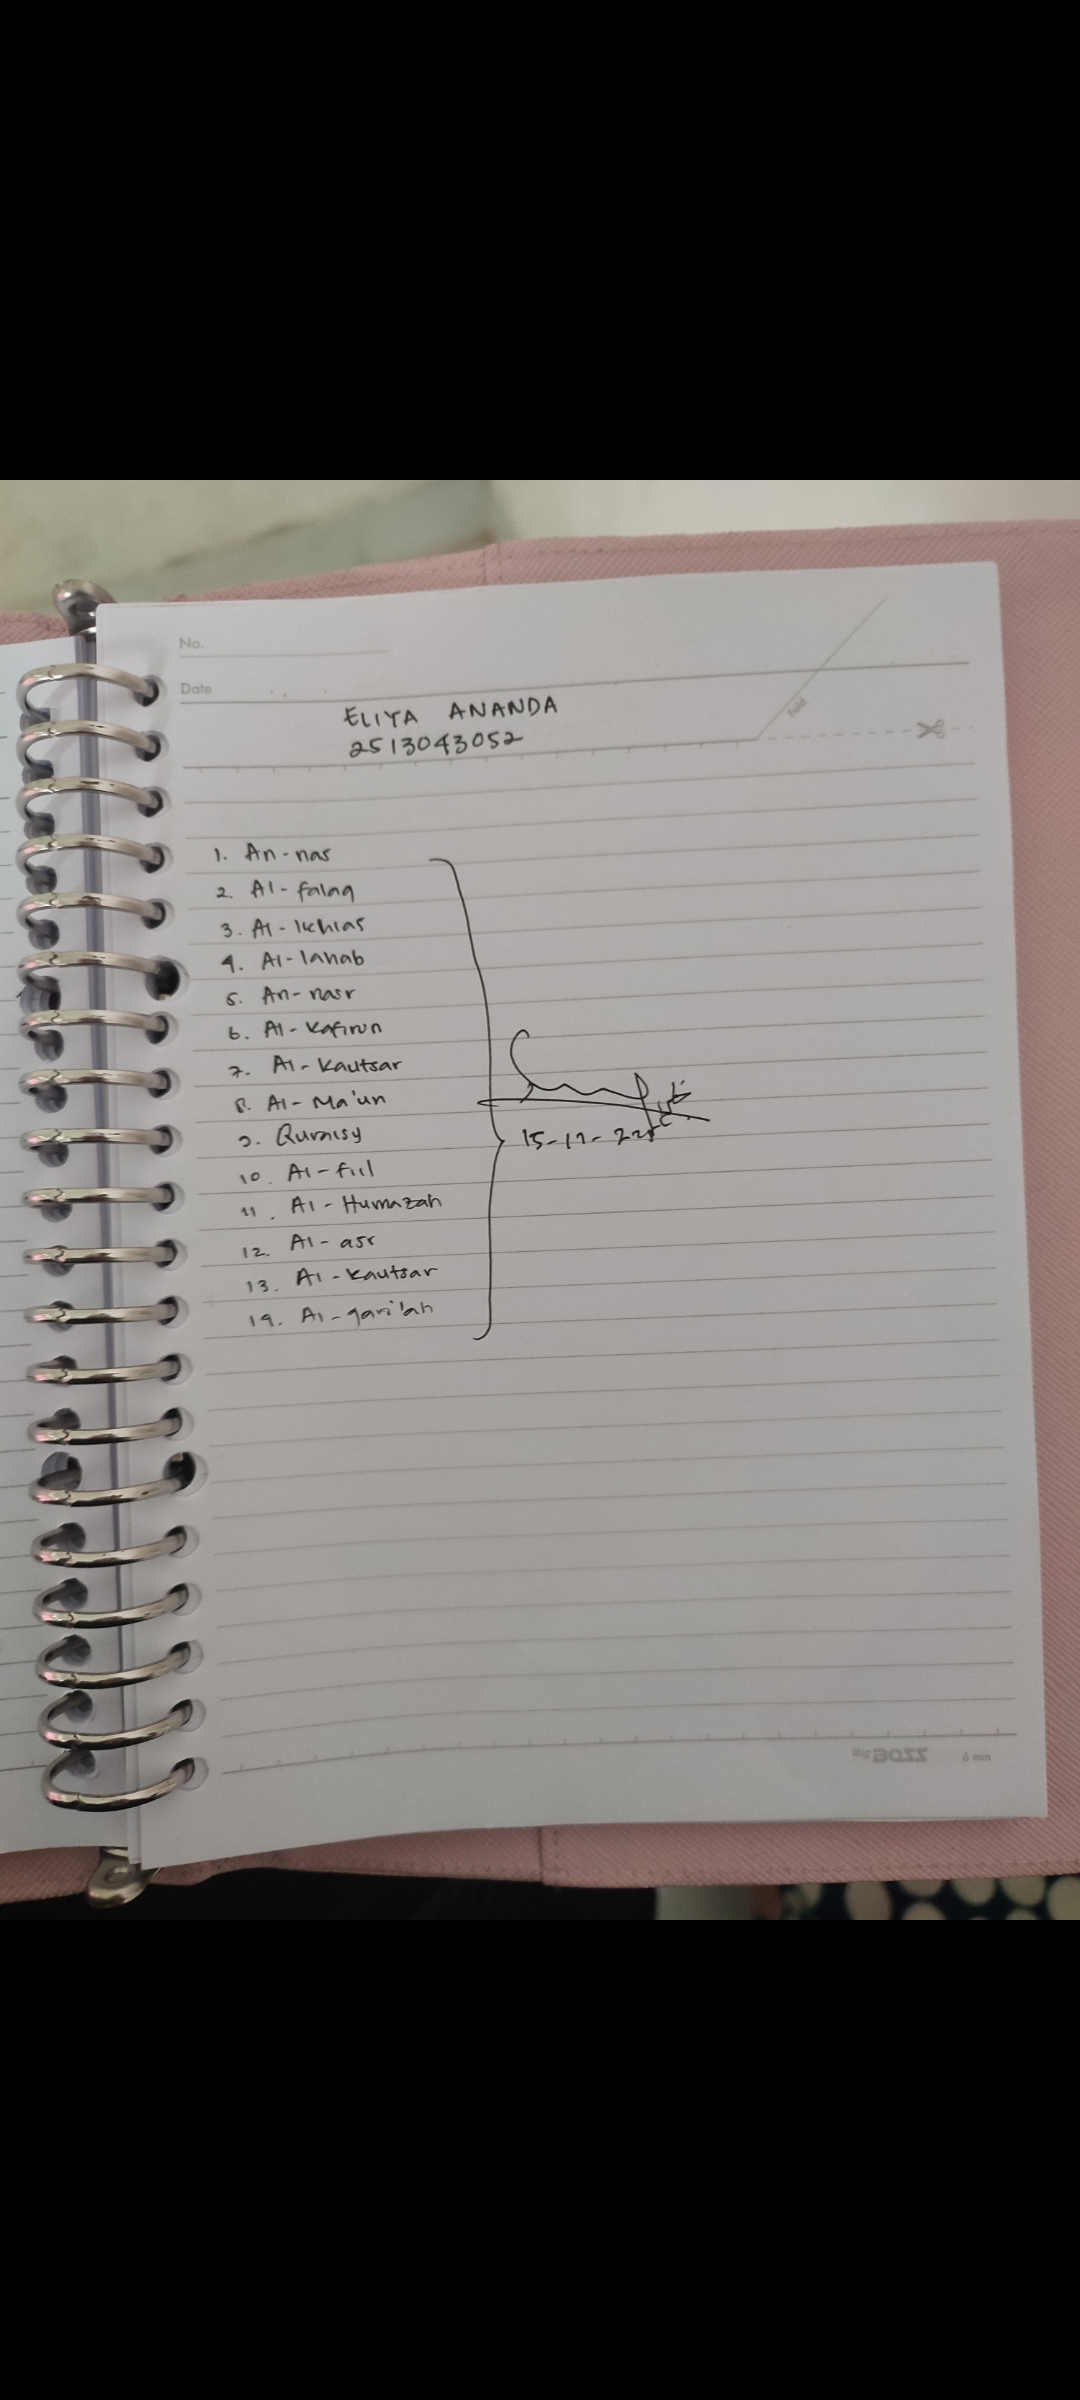 No.
Date
ELIYA ANANDA
2513043052
Fold
1. An-nas
2. Al-falaq
3. Al-Ikhlas
4. Al-lahab
5. An-nasr
6. Al-Kafirun
7. Al-Kautsar
8. Al-Ma'un
9. Quraisy
10. Al-fiil
11. Al-Humazah
12. Al-asr
13. Al-Kautsar
14. Al-qari'ah
15-12-
BIG BOSS 6 mm